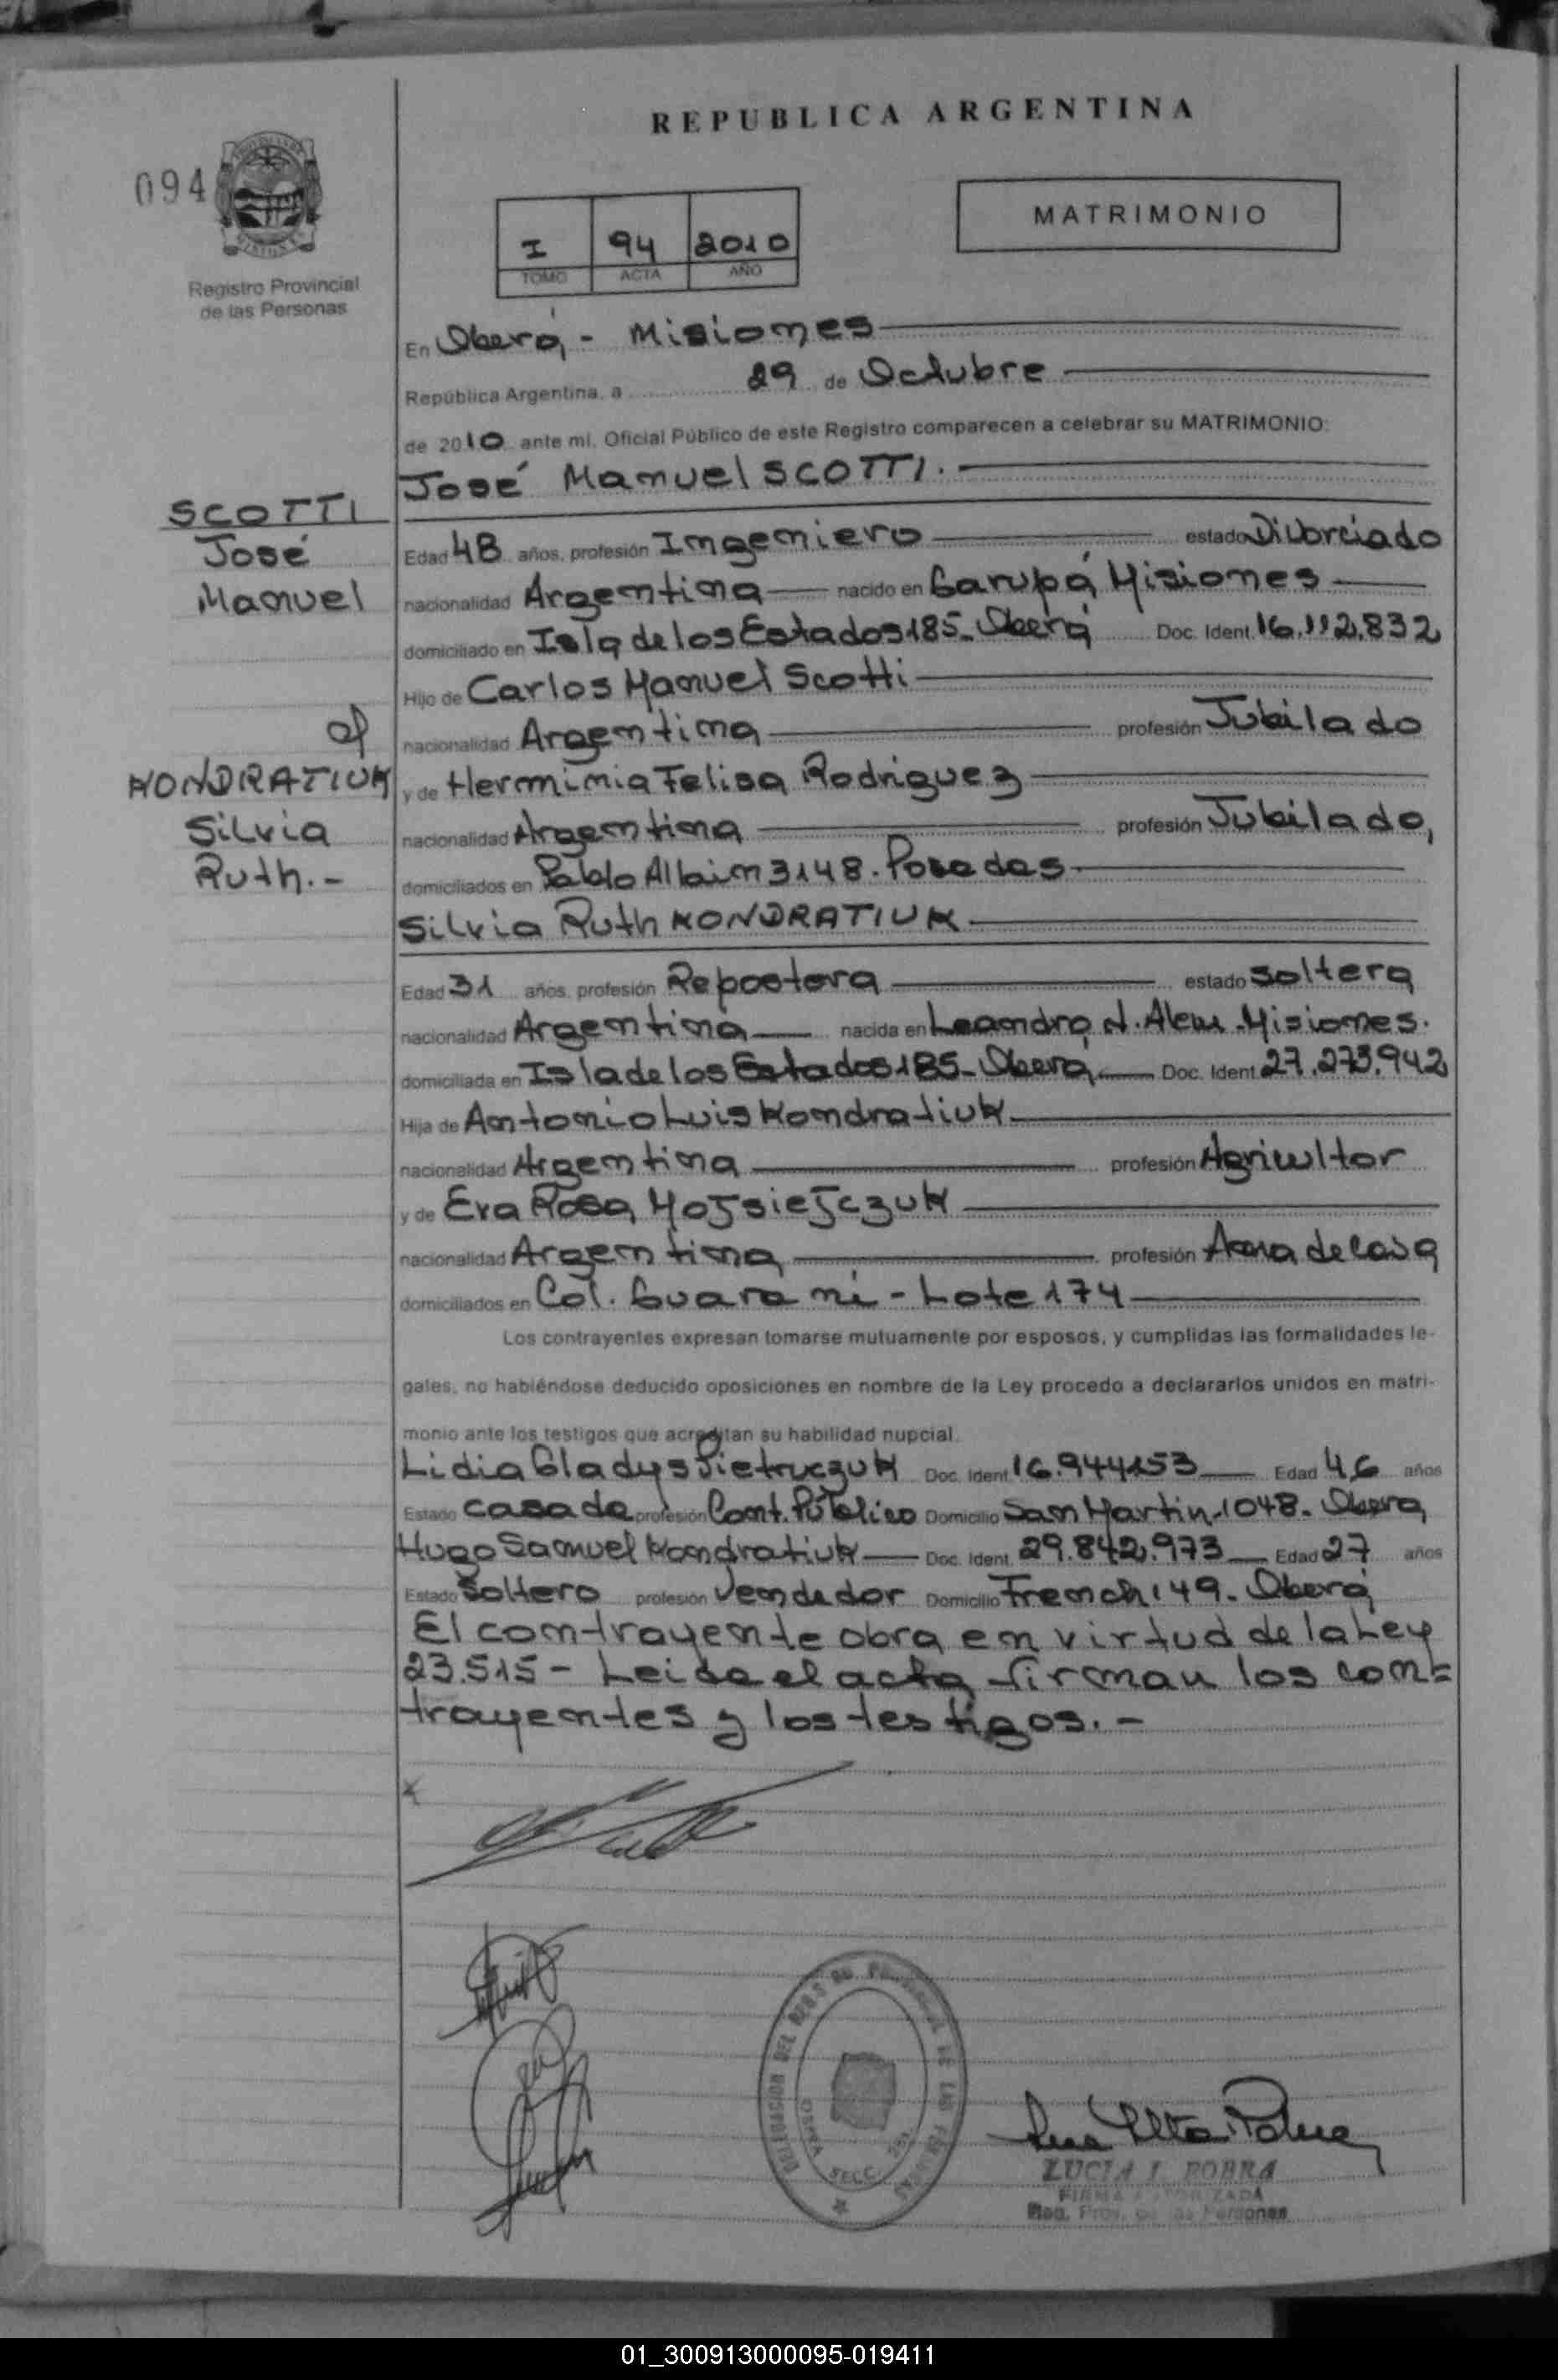 REPUBLICA ARGENTINA
094
MATRIMONIO
I 94 2010
TOMO ACTA AÑO
Registro Provincial
de las Personas
En Oberá - Misiones
República Argentina, a 29 de Octubre
de 2010 ante mi, Oficial Público de este Registro comparecen a celebrar su MATRIMONIO:
José Manuel SCOTTI.
SCOTTI
José
Manuel
Edad 48 años, profesión Ingeniero estado Divorciado
nacionalidad Argentina nacido en Garupá Misiones
domiciliado en Isla de los Estados 185- Oberá Doc. Ident. 16.112.832
Hijo de Carlos Manuel Scotti
nacionalidad Argentina profesión Jubilado
y de Herminia Felisa Rodriguez
nacionalidad Argentina profesión Jubilado,
domiciliados en Pablo Allain 3148. Posadas
KONDRATIUK
Silvia
Ruth.-
Silvia Ruth KONDRATIUK
Edad 31 años, profesión Repostera estado Soltera
nacionalidad Argentina nacida en Leandro N. Alem - Misiones.
domiciliada en Isla de los Estados 185- Oberá Doc. Ident. 27.273.942
Hija de Antonio Luis Kondratiuk
nacionalidad Argentina profesión Agricultor
y de Eva Rosa Mojsiejczuk
nacionalidad Argentina profesión Ama de casa
domiciliados en Col. Guarani - Lote 174
Los contrayentes expresan tomarse mutuamente por esposos, y cumplidas las formalidades le-
gales, no habiéndose deducido oposiciones en nombre de la Ley procedo a declararlos unidos en matri-
monio ante los testigos que acreditan su habilidad nupcial.
Lidia Gladys Pietruczuk Doc. Ident. 16.944153 Edad 46 años
Estado Casada profesión Cont. Público Domicilio San Martin-1048- Oberá
Hugo Samuel Kondratiuk Doc. Ident. 29.842.973 Edad 27 años
Estado Soltero profesión Vendedor Domicilio French 149- Oberá
El contrayente obra en virtud de la Ley
23.515 - Leida el acta firman los con=
trayentes y los testigos. -
LUCIA I. POBRA
FIRMA AUTORIZADA
Reg. Prov. de las Personas
01_300913000095-019411